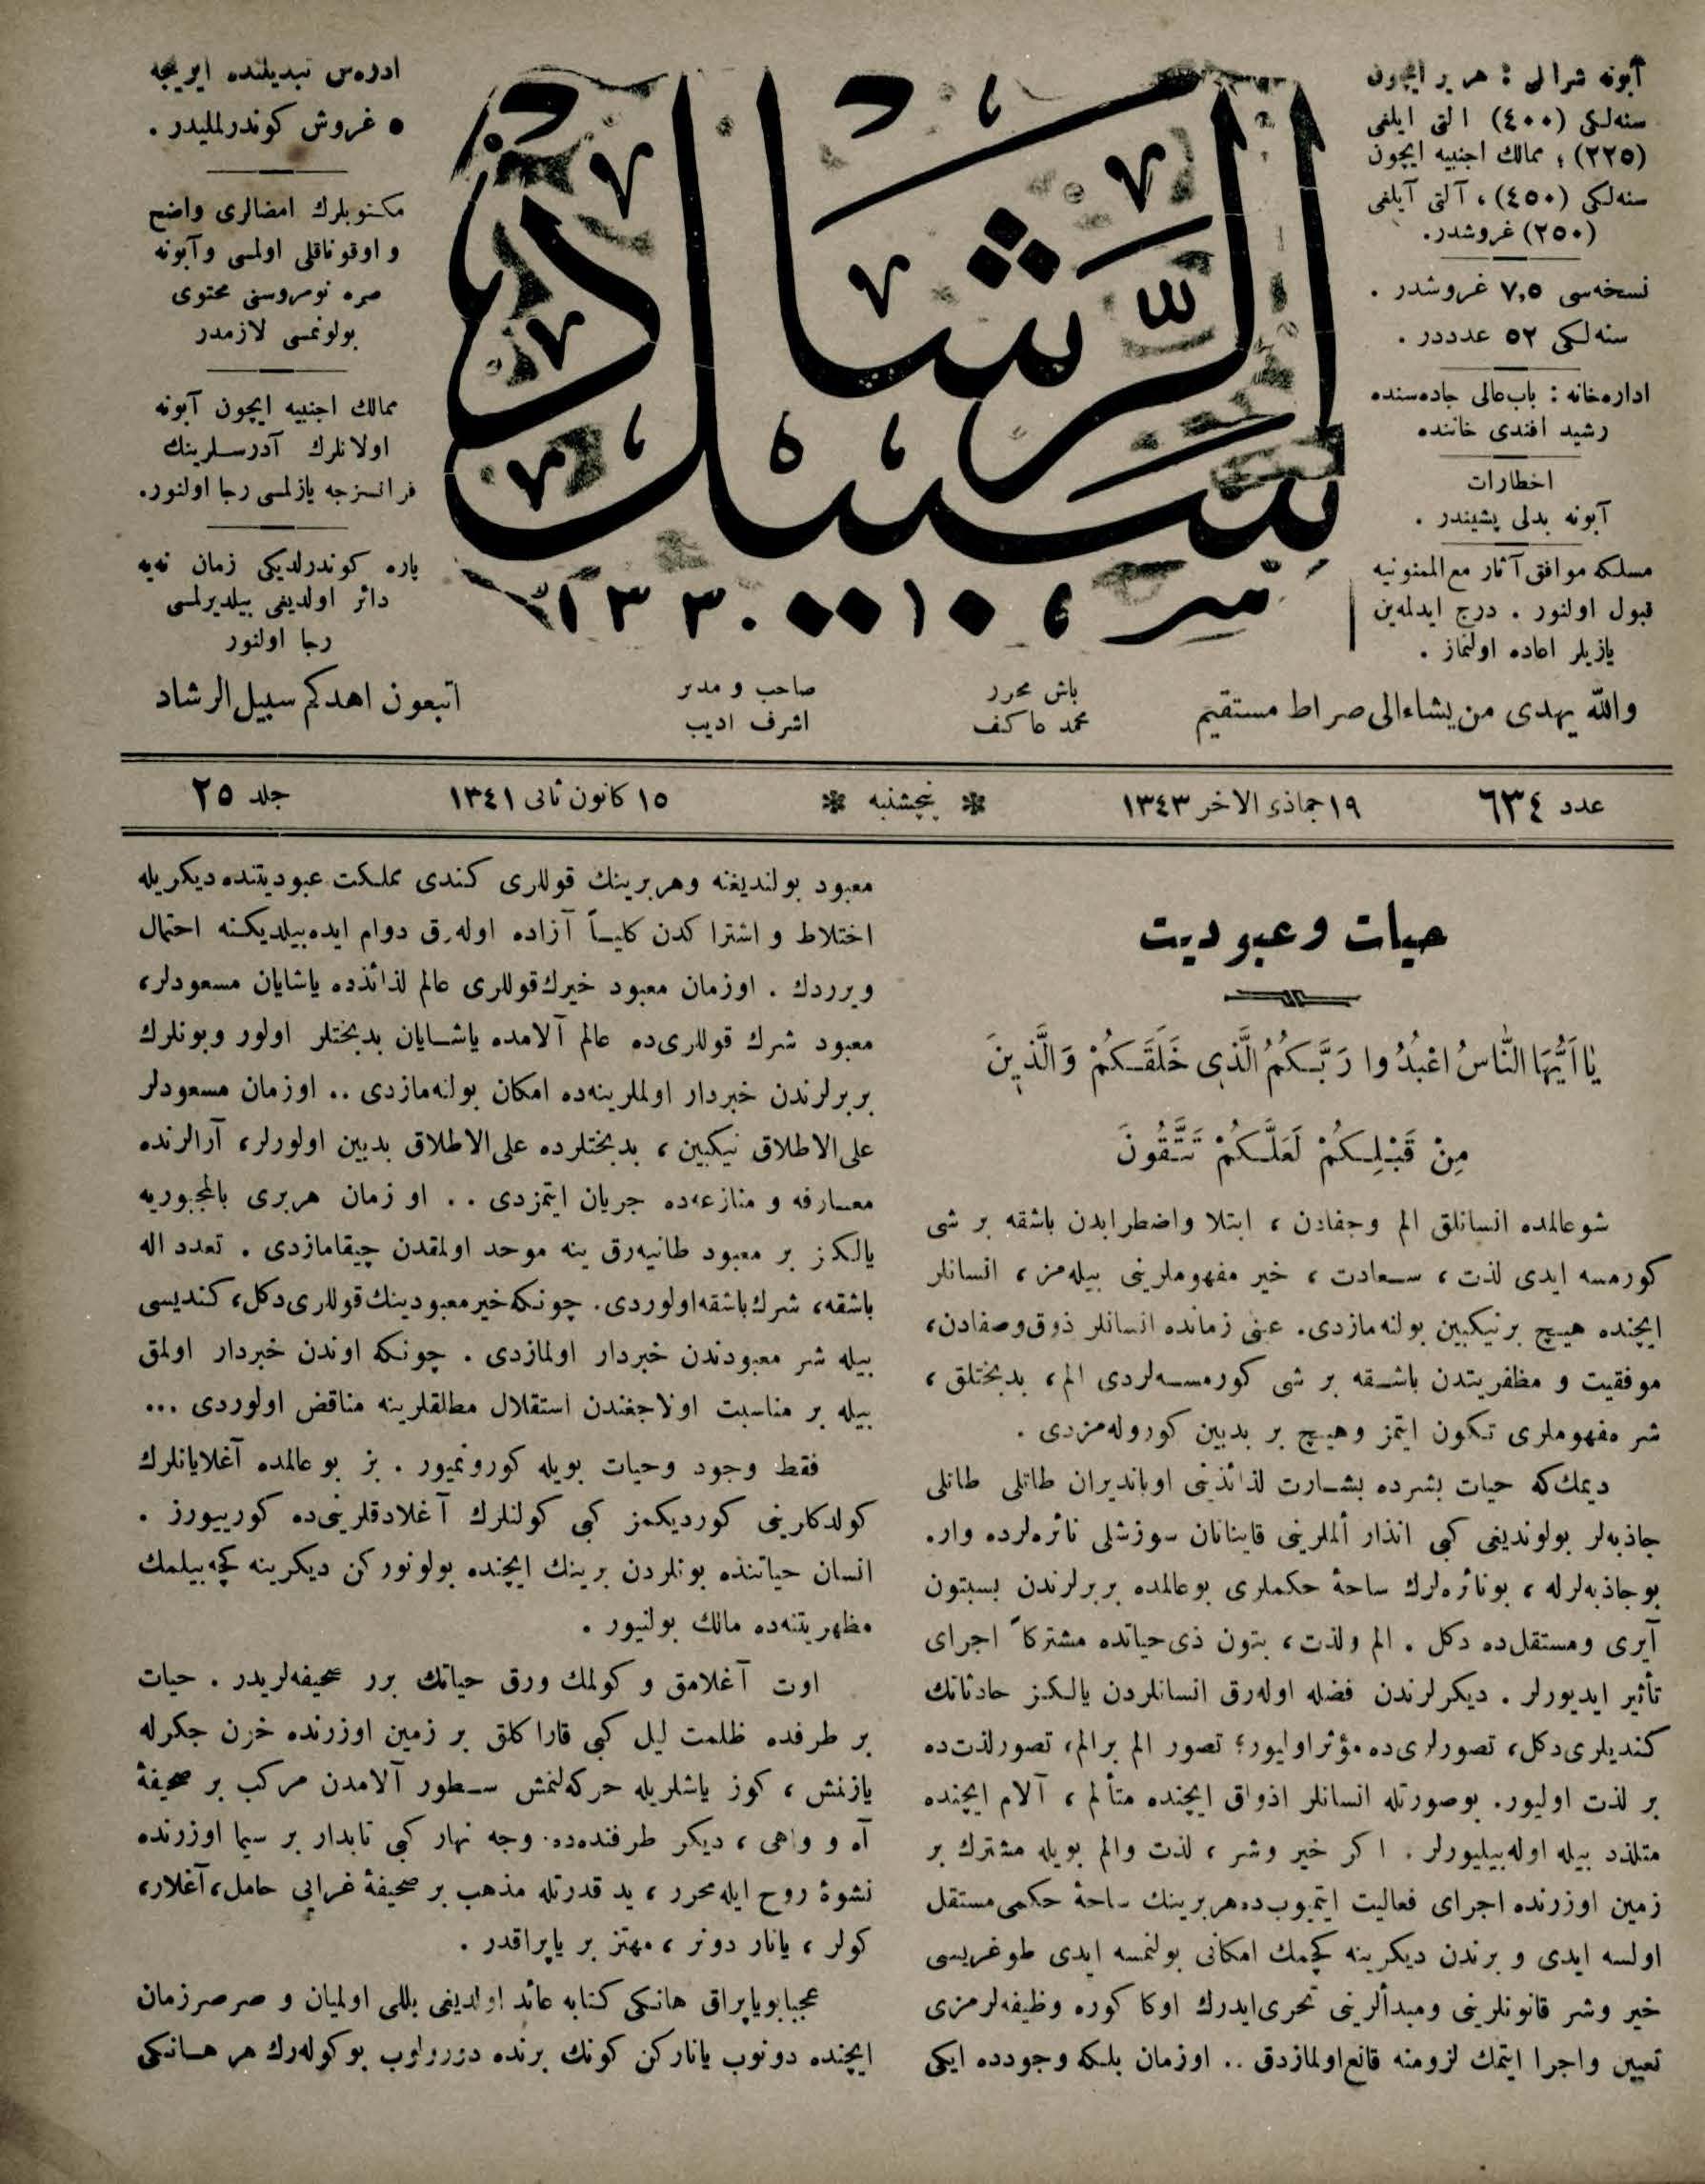 آبونه شرائطی : هر یر ایچون
سنه‌لكی (٤٠٠) التی ایلغی
(٢٢٥) ؛ ممالك اجنبیه ایچون
سنه‌لكی (٤٥٠) ، آلتی آیلغی
(٢٥٠) غروشدر.
نسخه‌سی ٧,٥ غروشدر .
سنه‌لكی ٥٢ عدددر .
اداره‌خانه : باب‌عالی جاده‌سنده
رشید افندی خاننده
اخطارات
آبونه بدلی پشیندر .
مسلكه موافق آثار مع‌الممنونیه
قبول اولنور . درج ایدلمه‌ین
یازیلر اعاده اولنماز .
سبیل الرشاد
ادره‌س تبدیلنده آیریجه
٥ غروش كوندرلملیدر .
مكتوبلرك امضالری واضح
و اوقوناقلی اولمسی وآبونه
صره نومروسنی محتوی
بولونمسی لازمدر
ممالك اجنبیه ایچون آبونه
اولانلرك آدرسلرینك
فرانسزجه یازلمسی رجا اولنور.
پاره كوندرلدیكی زمان نه‌یه
دائر اولدیغی بیلدیرلمسی
رجا اولنور
والله یهدی من یشاء الی صراط مستقیم
باش محرر
محمد عاكف
صاحب و مدیر
اشرف ادیب
اتبعون اهدكم سبیل الرشاد
عدد ٦٣٤
١٩ جماذی الاخر ١٣٤٣
پنجشنبه
١٥ كانون ثانی ١٣٤١
جلد ٢٥
حیات و عبودیت
یٰا اَیُّهَا النَّاسُ اعْبُدُوا رَبَّكُمُ الَّذِی خَلَقَكُمْ وَالَّذِینَ
مِنْ قَبْلِكُمْ لَعَلَّكُمْ تَتَّقُونَ
شو عالمده انسانلق الم وجفادن ، ابتلا واضطرابدن باشقه بر شی
كورمسه ایدی لذت ، سعادت ، خیر مفهوملرینی بیله‌مز ، انسانلر
ایچنده هیچ برنیكبین بولنه‌مازدی. عینی زمانده انسانلر ذوق‌وصفادن،
موفقیت و مظفریتدن باشقه بر شی كورمسه‌لردی الم ، بدبختلق ،
شر مفهوملری تكون ایتمز وهیچ بر بدبین كوروله‌مزدی .
دیمك‌كه حیات بشرده بشارت لذائذینی اویاندیران طاتلی طاتلی
جاذبه‌لر بولوندیغی كبی انذار ألملرینی قایناتان سوزشلی نائره‌لرده وار.
بوجاذبه‌لرله ، بونائره‌لرك ساحۀ حكملری بوعالمده بربرلرندن بسبتون
آیری ومستقل‌ده دكل . الم ولذت ، بتون ذی‌حیاتده مشتركاً اجرای
تأثیر ایدیورلر . دیكرلرندن فضله اوله‌رق انسانلردن یالكز حادثاتك
كندیلری‌دكل، تصورلری‌ده مؤثراولیور؛ تصور الم برالم، تصورلذت‌ده
بر لذت اولیور. بوصورتله انسانلر اذواق ایچنده متألم ، آلام ایچنده
متلذذ بیله اوله‌بیلیورلر . اكر خیر وشر ، لذت والم بویله مشترك بر
زمین اوزرنده اجرای فعالیت ایتمیوب‌ده‌هربرینك ساحۀ حكمی‌مستقل
اولسه ایدی و برندن دیكرینه كچمك امكانی بولنمسه ایدی طوغریسی
خیر وشر قانونلرینی ومبدألرینی تحری‌ایدرك اوكا كوره وظیفه‌لرمزی
تعیین واجرا ایتمك لزومنه قانع‌اولمازدق .. اوزمان بلكه وجودده ایكی
معبود بولندیغنه وهربرینك قوللری كندی مملكت عبودیتنده‌دیكریله
اختلاط و اشتراكدن كلیاً آزاده اوله‌رق دوام ایده‌بیلدیكنه احتمال
ویرردك . اوزمان معبود خیرك‌قوللری عالم لذائذده یاشایان مسعودلر،
معبود شرك قوللری‌ده عالم آلامده یاشایان بدبختلر اولور وبونلرك
بربرلرندن خبردار اولملرینه‌ده امكان بولنه‌مازدی .. اوزمان مسعودلر
علی‌الاطلاق نیكبین ، بدبختلرده علی‌الاطلاق بدبین اولورلر، آرالرنده
معارفه و منازعه‌ده جریان ایتمزدی . . او زمان هربری بالمجبوریه
یالكز بر معبود طانیه‌رق ینه موحد اولمقدن چیقامازدی . تعدد اله
باشقه، شرك‌باشقه‌اولوردی. چونكه‌خیرمعبودینك‌قوللری‌دكل، كندیسی
بیله شر معبودندن خبردار اولمازدی . چونكه اوندن خبردار اولمق
بیله بر مناسبت اولاجغندن استقلال مطلقلرینه مناقض اولوردی ...
فقط وجود وحیات بویله كورونمیور . بز بو عالمده آغلایانلرك
كولدكارینی كوردیكمز كبی كولنلرك آغلادقلرینی‌ده كورییورز .
انسان حیاتنده بونلردن برینك ایچنده بولونوركن دیكرینه كچه‌بیلمك
مظهریتنه‌ده مالك بولنیور .
اوت آغلامق و كولمك ورق حیاتك برر صحیفه‌لریدر . حیات
بر طرفده ظلمت لیل كبی قاراكلق بر زمین اوزرنده خزن جكرله
یازلمش ، كوز یاشلریله حركه‌لنمش سطور آلامدن مركب بر صحیفۀ
آه و واهی ، دیكر طرفنده‌ده وجه نهار كبی تابدار بر سیما اوزرنده
نشوۀ روح ایله‌محرر ، ید قدرتله مذهب بر صحیفۀ غرایی حامل، آغلار،
كولر ، یانار دونر ، مهتز بر یاپراقدر .
عجبابویاپراق هانكی كتابه عائد اولدیغی بللی اولمیان و صرصرزمان
ایچنده دونوب یاناركن كونك برنده دوریلوب بوكوله‌رك هر هانكی